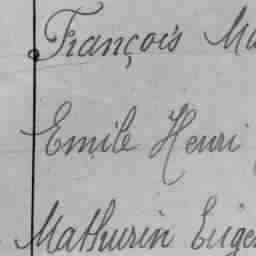 François Ma
Emile Henri
Mathurin Euge